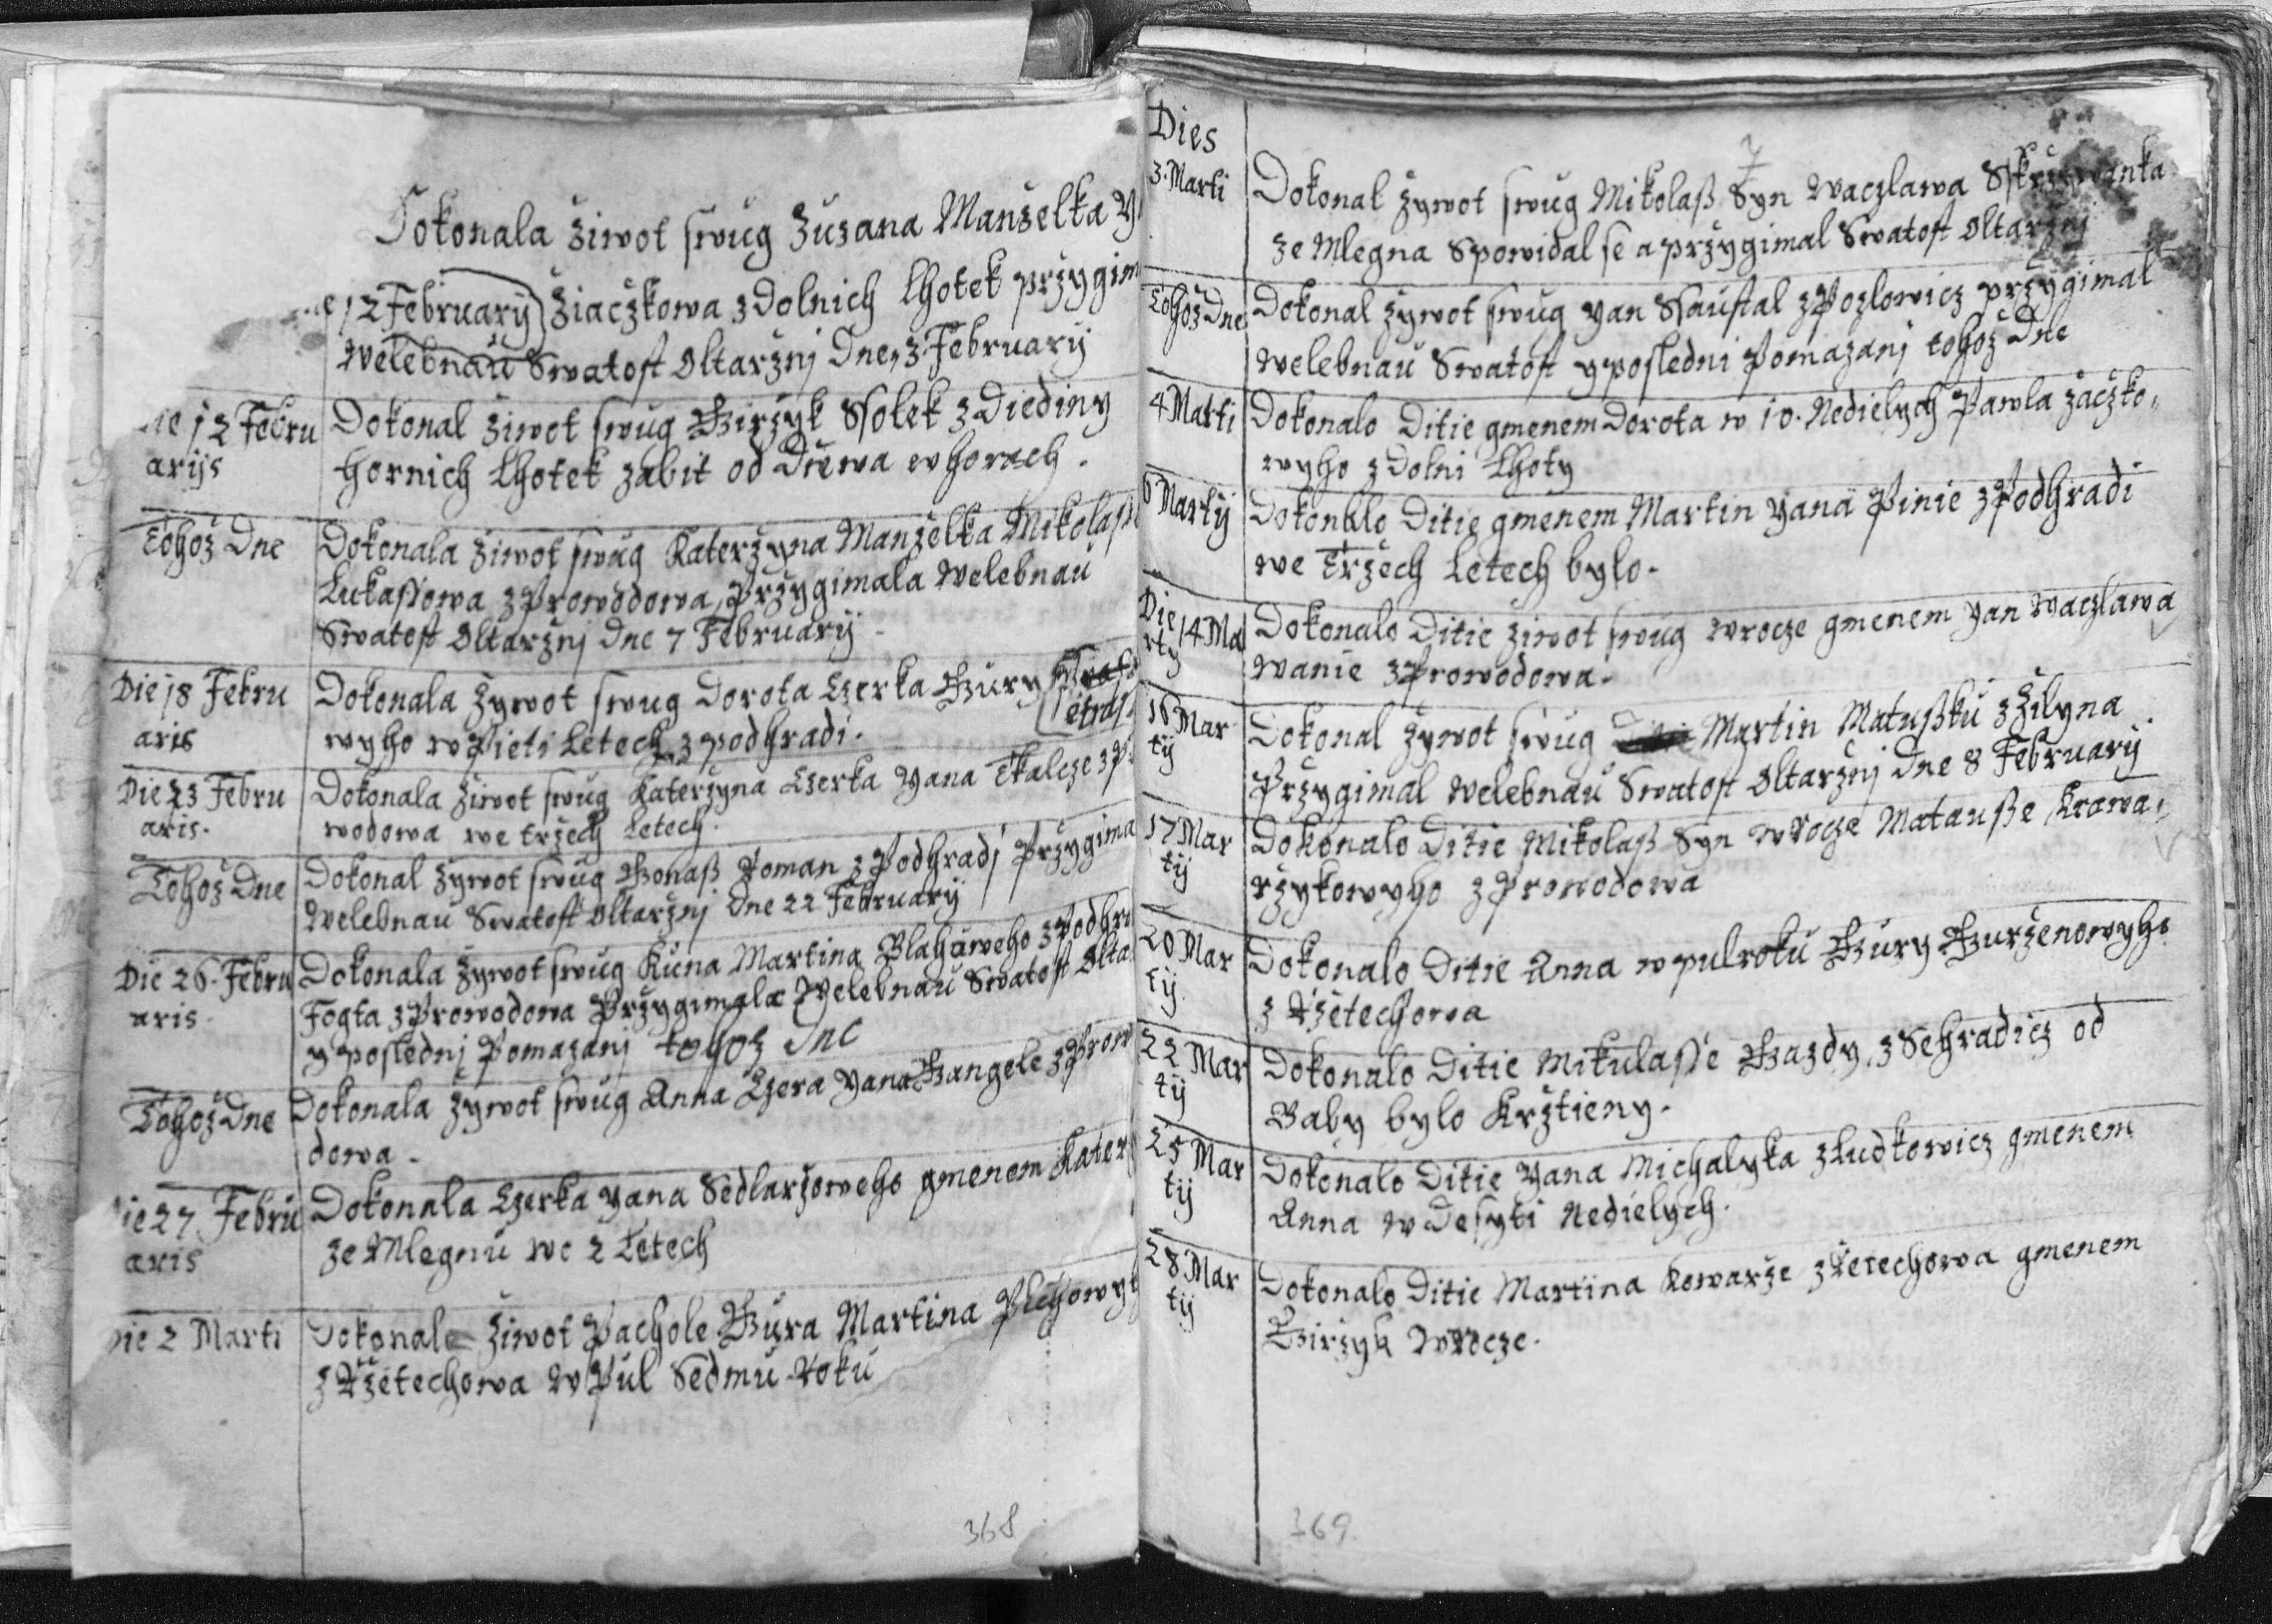 Dokonala žiwot swug Zuzana Manželka
12 February Žiaczkowa z Dolnich Lhotek przygim
Welebnau Swatost Oltaržnj Dne 3 February
Die 12 Febru
arijs
Dokonal žiwot swug Girzyk Ssolek z Diediny
hornich Lhotek zabit od Dřewa w horach.
Tohož Dne
Dokonala žiwot swug Kateržyna Manželka Mikolass
Lukassowa z Prowodowa, Pržygimala Welebnau
Swatost Oltaržnj Dne 7 February
Die 18 Febru
aris
Dokonala žywot swug Dorota Czerka Gury
wyho w Pieti Letech z podhradi.
Die 23 Febru
aris.
Dokonala žiwot swug Kateržyna Czerka Yana Tkalcze z P
wodowa we tržech Letech.
Tohož Dne
Dokonal žywot swug Gonaß Roman z Podhradj Pržygima
Welebnau Swatost Oltaržnj Dne 22 February
Die 26. Febru
aris.
Dokonala žywot swug Kuna Martina Blahaweho z Podhra
Fogta z Prowodowa Pržygimala Welebnau Swatost Olta
y poslednj Pomazanj tohož Dne
Tohož Dne
Dokonala žywot swug Anna Czera Yana Gangele z Prow
dowa.
Die 27. Febru
aris
Dokonala Czerka Yana Sedlaržoweho gmenem Kater
ze Mlegnu we 2 Letech
Die 2 Marti
Dokonale žiwot Pachole Gura Martina Plchowyh
z Ržetechowa w Pul Sedmu Roku
368
Dies
7
3. Marti
Dokonal žywot swug Mikolaß Syn Waczlawa
ze Mlegna Spowidal se a pržygimal Swatost Oltaržnj
Tohož Dne
Dokonal žywot swug Yan Ssaustal z Pozlowicz pržygimal
Welebnau Swatost y posledni Pomazanj tohož Dne
4 Marti
Dokonalo Ditie gmenem Dorota w 10. Nedielych Pawla Žaczko,,
wyho z Dolni Lhoty
6 Martij
Dokonalo Ditie gmenem Martin Yana Pinie z Podhradi
we Tržech Letech bylo.
Die 14 Ma
rty
Dokonalo Ditie žiwot swug w rocze gmenem Yan Waczlawa
Wanie z Prowodowa.
16 Mar
tij
Dokonal žywot swug Martin Matußku z Žilyna
Pržygimal Welebnau Swatost Oltaržnj Dne 8 February
17 Mar
tij
Dokonalo Ditie Mikolaß Syn w Rocze Matauße Krawa,,
ržykowyho z Prowodowa
20 Mar
tij.
Dokonalo Ditie Anna w pulroku Gury Gurženowyho
z Ržetechowa
22 Mar
tij
Dokonalo Ditie Mikulasse Gazdy z Sehradicz od
Baby bylo Kržtieny.
25 Mar
tij
Dokonalo Ditie Yana Michalyka z Ludkowicz gmenem
Anna w Desyti Nedielych.
28 Mar
tij
Dokonalo Ditie Martina Kowarže z Retechowa gmenem
Giržyk w Rocze.
369